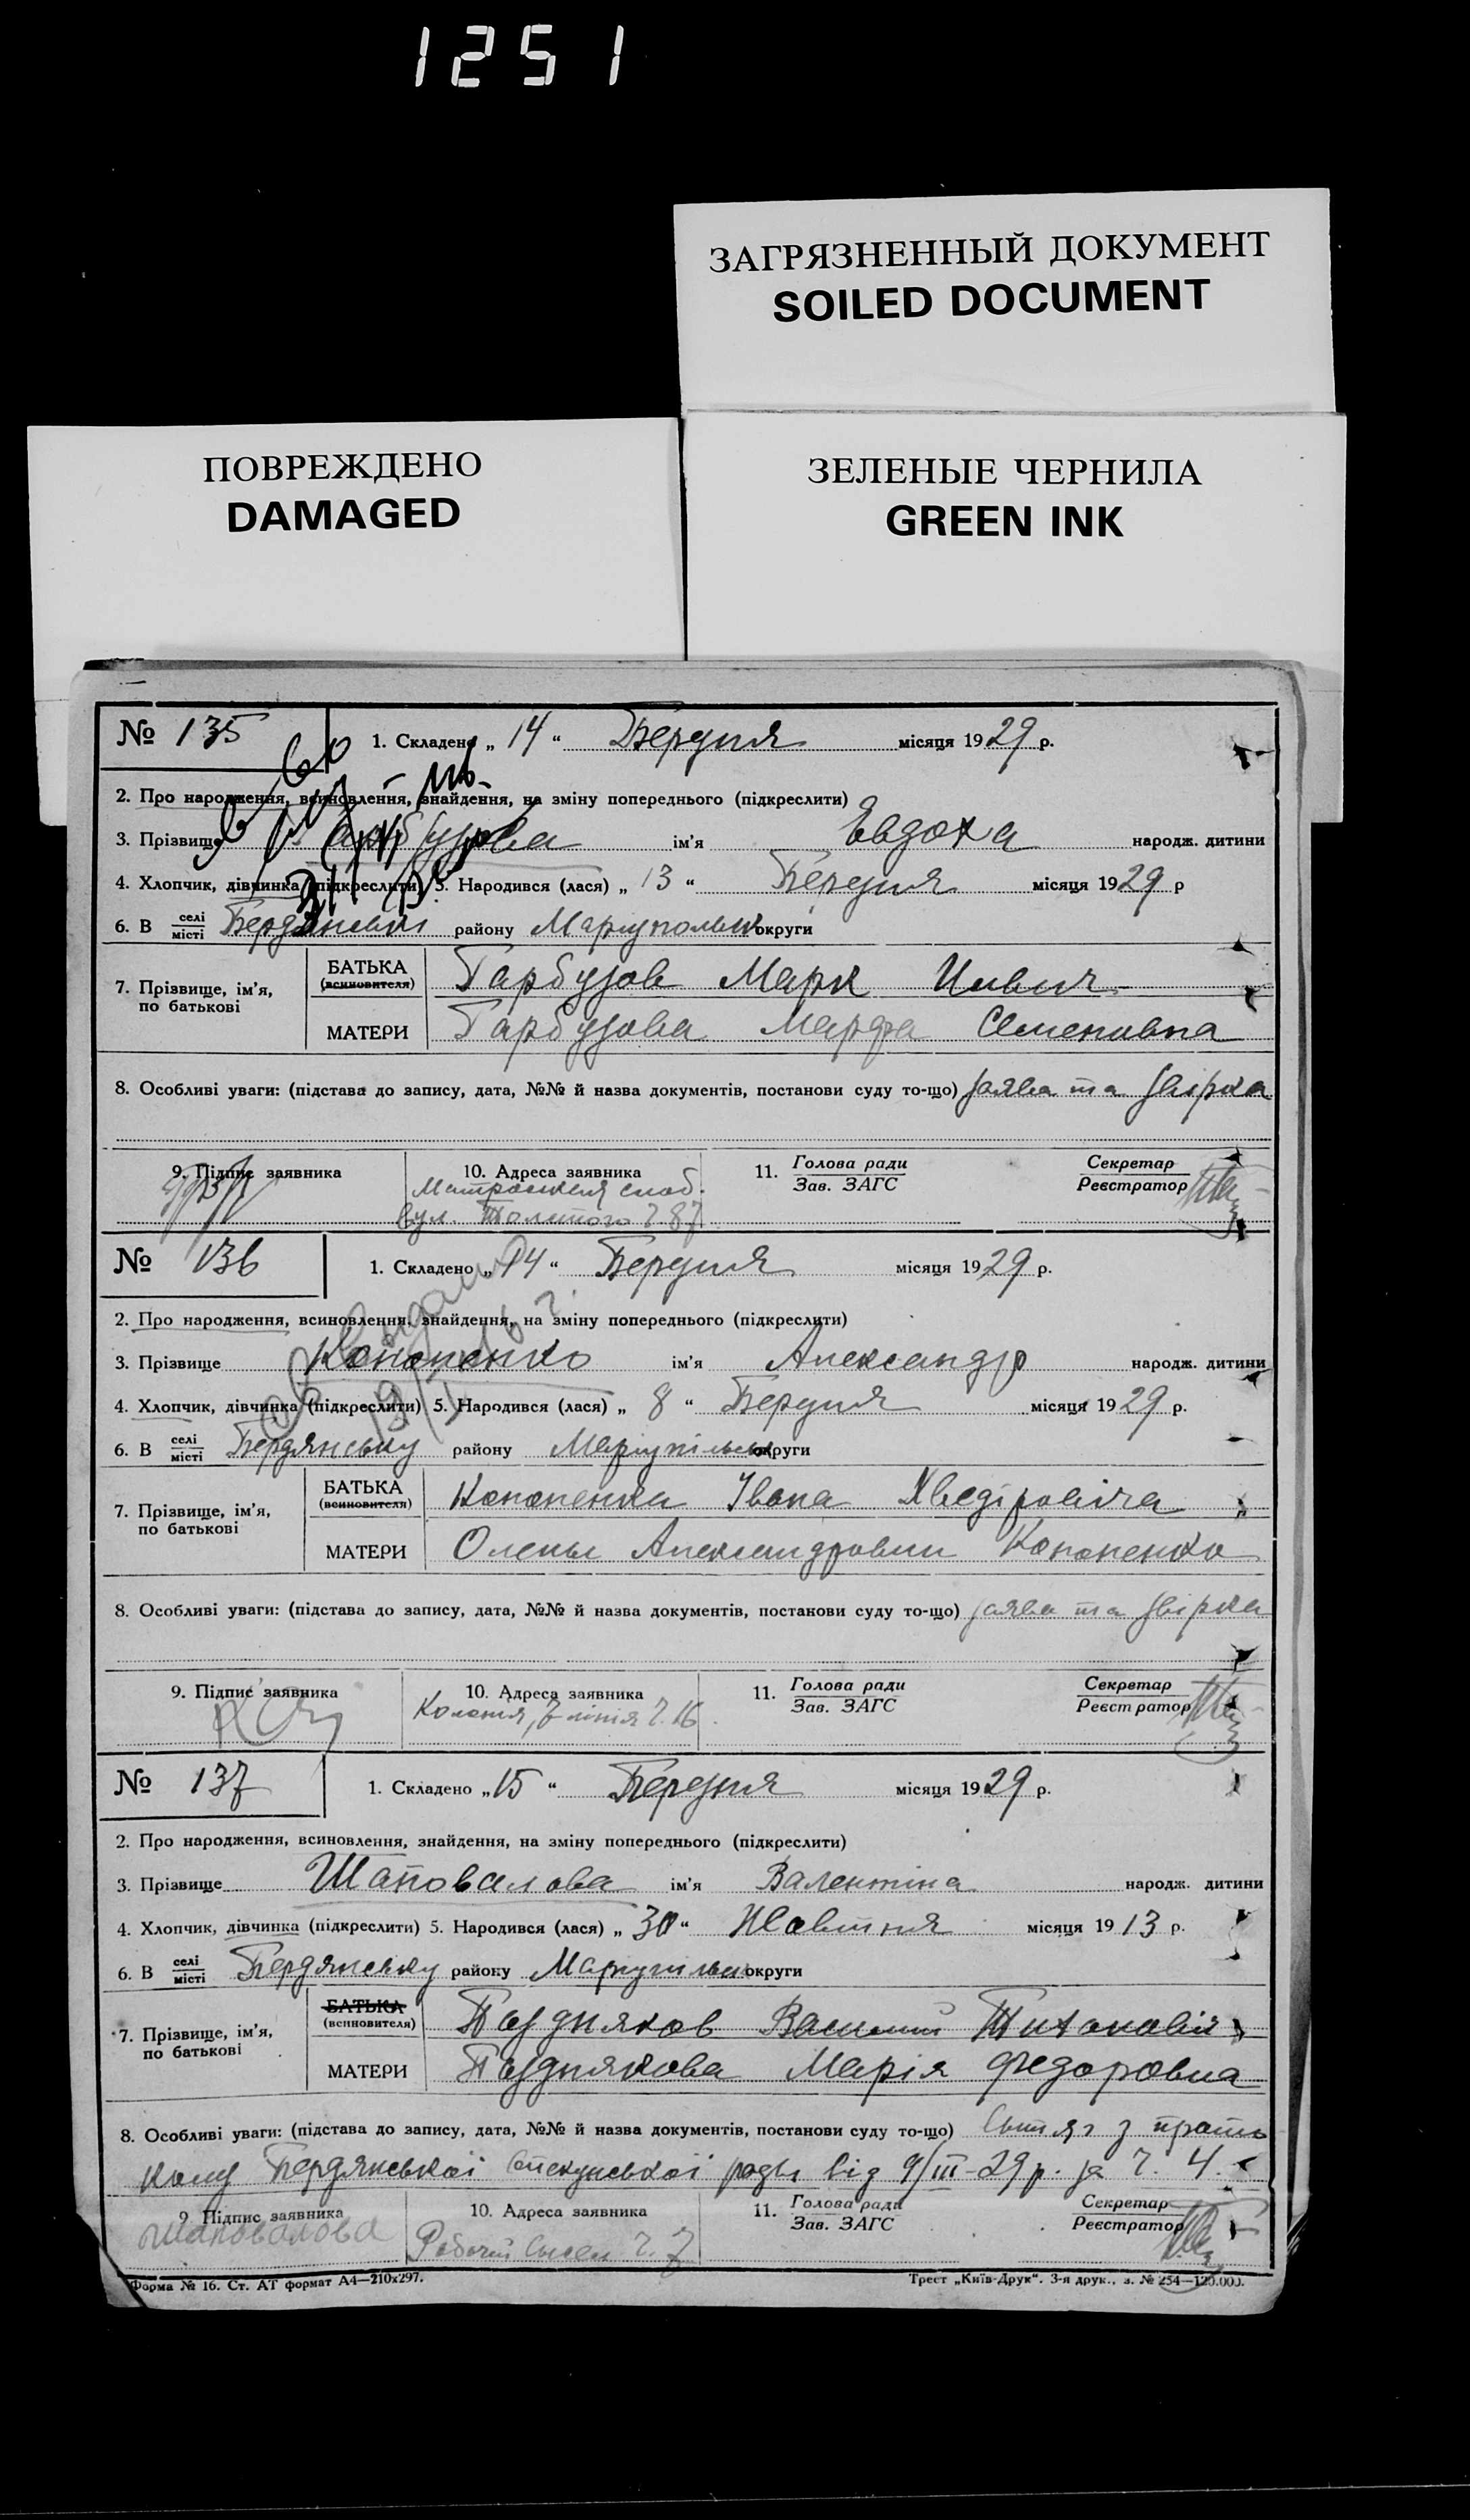 1251
ЗАГРЯЗНЕННЫЙ ДОКУМЕНТ
SOILED DOCUMENT
ПОВРЕЖДЕНО
DAMAGED
ЗЕЛЕНЫЕ ЧЕРНИЛА
GREEN INK
№ 135 1. Складено „ 14 “ Березня місяця 1929 р.
2. Про народження, всиновлення, знайдення, на зміну попереднього (підкреслити)
3. Прізвище Гарбузова ім'я Евдоха народж. дитини
4. Хлопчик, дівчинка (підкреслити) 5. Народився (лася) „ 13 “ Березня місяця 1929 р
6. В селі місті Бердянськ району Маріупольськ округи
7. Прізвище, ім'я, по батькові БАТЬКА (всиновителя) Гарбузов Марк
МАТЕРИ Гарбузова Марфа Семеновна
8. Особливі уваги: (підстава до запису, дата, №№ й назва документів, постанови суду то-що) заява та звірка
9. Підпис заявника 10. Адреса заявника 11. Голова ради Зав. ЗАГС Секретар Реєстратор
Матроськая слоб.
вул. Толстого ч 87
№ 136 1. Складено „ 14 “ Березня місяця 1929 р.
2. Про народження, всиновлення, знайдення, на зміну попереднього (підкреслити)
3. Прізвище Кононенко ім'я Александр народж. дитини
4. Хлопчик, дівчинка (підкреслити) 5. Народився (лася) „ 8 “ Березня місяця 1929 р.
6. В селі місті Бердянську району Маріупільськ округи
7. Прізвище, ім'я, по батькові БАТЬКА (всиновителя) Кононенка Івана Хведіровіча
МАТЕРИ Олены Александровни Кононенко
8. Особливі уваги: (підстава до запису, дата, №№ й назва документів, постанови суду то-що) заява та звірка
9. Підпис заявника 10. Адреса заявника 11. Голова ради Зав. ЗАГС Секретар Реєстратор
Колонія, 7 лінія ч. 16
№ 137 1. Складено „ 15 “ Березня місяця 1929 р.
2. Про народження, всиновлення, знайдення, на зміну попереднього (підкреслити)
3. Прізвище Шаповалова ім'я Валентіна народж. дитини
4. Хлопчик, дівчинка (підкреслити) 5. Народився (лася) „ 30 “ Жовтня місяця 1913 р.
6. В селі місті Бердянську району Маріупільськ округи
7. Прізвище, ім'я, по батькові БАТЬКА (всиновителя) Поздняков Василий Тихоновіч
МАТЕРИ Позднякова Марія Федоровна
8. Особливі уваги: (підстава до запису, дата, №№ й назва документів, постанови суду то-що) Витяг з прото
колу Бердянської Опекунської ради від 9/III-29 р. за ч. 4.
9. Підпис заявника 10. Адреса заявника 11. Голова ради Зав. ЗАГС Секретар Реєстратор
Шаповалова
Форма № 16. Ст. АТ формат А4—210х297. Трест „Київ-Друк“. 3-я друк., з. № 254—120.000.